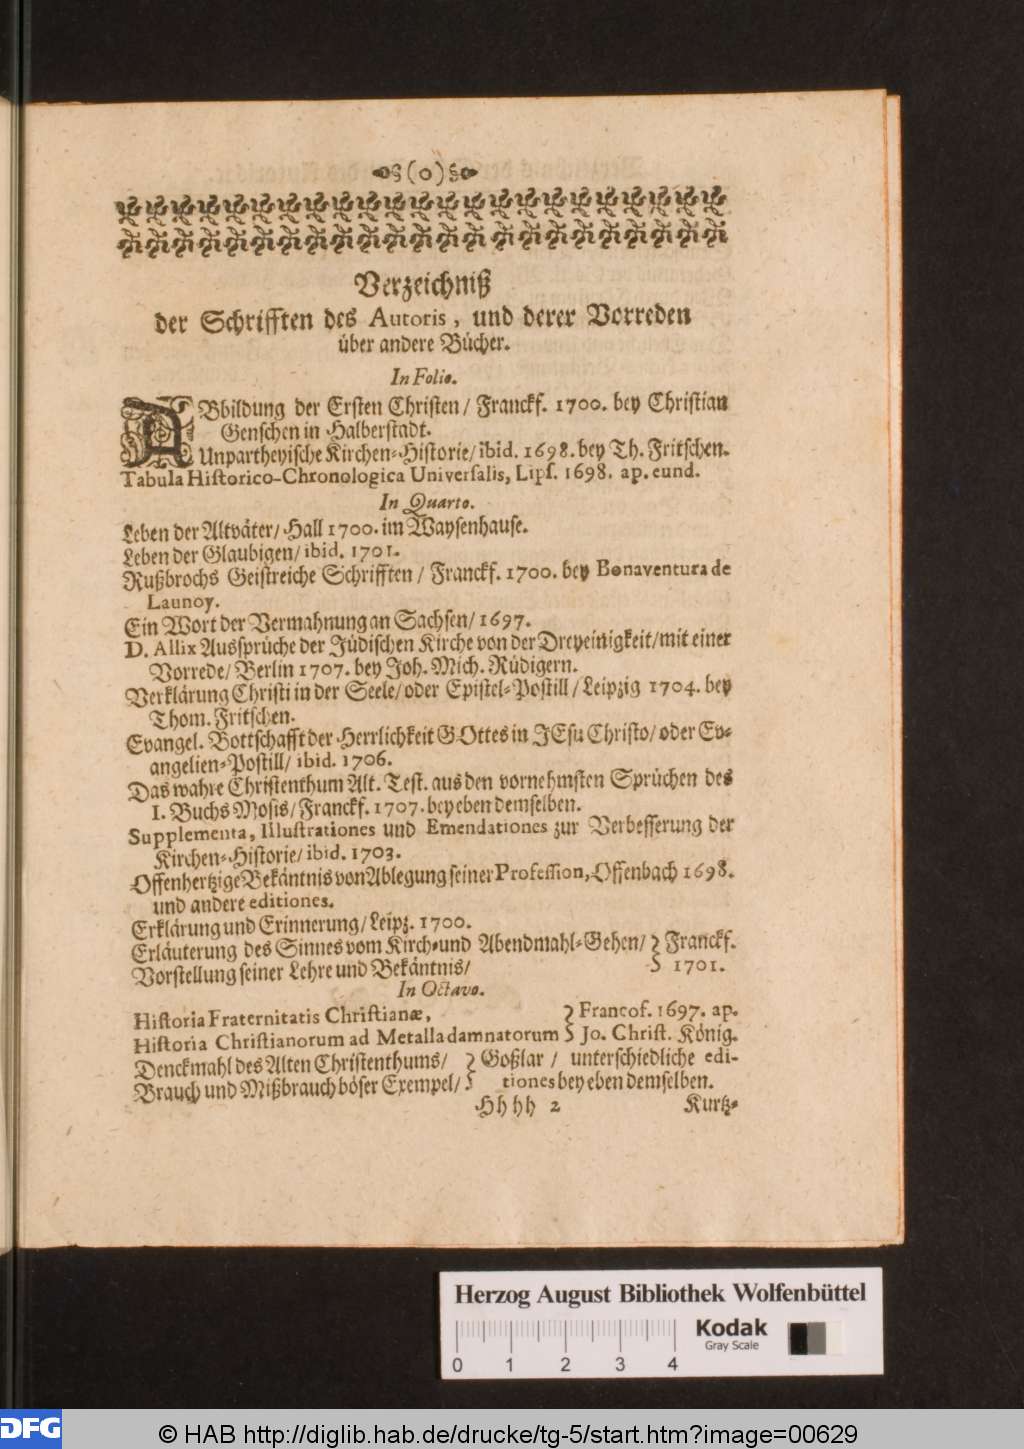 (o)
Verzeichniß
der Schrifften des Autoris, und derer Vorreden
über andere Bücher.
In Folio.
ABbildung der Ersten Christen / Franckf. 1700. bey Christian
Genschen in Halberstadt.
Unpartheyische Kirchen-Historie/ ibid. 1698. bey Th. Fritschen.
Tabula Historico-Chronologica Universalis, Lips. 1698. ap. eund.
In Quarto.
Leben der Altväter/ Hall 1700. im Waysenhause.
Leben der Glaubigen/ ibid. 1701.
Rußbrochs Geistreiche Schrifften / Franckf. 1700. bey Bonaventura de
Launoy.
Ein Wort der Vermahnung an Sachsen/ 1697.
D. Allix Aussprüche der Jüdischen Kirche von der Dreyeinigkeit/ mit einer
Vorrede/ Berlin 1707. bey Joh. Mich. Rüdigern.
Verklärung Christi in der Seele/ oder Epistel-Postill / Leipzig 1704. bey
Thom. Fritschen.
Evangel. Bottschafft der Herrlichkeit GOttes in JEsu Christo/ oder Ev-
angelien-Postill/ ibid. 1706.
Das wahre Christenthum Alt. Test. aus den vornehmsten Sprüchen des
I. Buchs Mosis/ Franckf. 1707. bey eben demselben.
Supplementa, Illustrationes und Emendationes zur Verbesserung der
Kirchen-Historie/ ibid. 1703.
Offenhertzige Bekäntnis von Ablegung seiner Profession, Offenbach 1698.
und andere editiones.
Erklärung und Erinnerung/ Leipz. 1700.
Erläuterung des Sinnes vom Kirch-und Abendmahl-Gehen/ } Franckf.
Vorstellung seiner Lehre und Bekäntnis/ } 1701.
In Octavo.
Historia Fraternitatis Christianæ, } Francof. 1697. ap.
Historia Christianorum ad Metalla damnatorum } Jo. Christ. König.
Denckmahl des Alten Christenthums/ } Goßlar / unterschiedliche edi-
Brauch und Mißbrauch böser Exempel/ } tiones bey eben demselben.
Hhhh 2 Kurtz-
Herzog August Bibliothek Wolfenbüttel
Kodak
Gray Scale
0 1 2 3 4
DFG
© HAB http://diglib.hab.de/drucke/tg-5/start.htm?image=00629